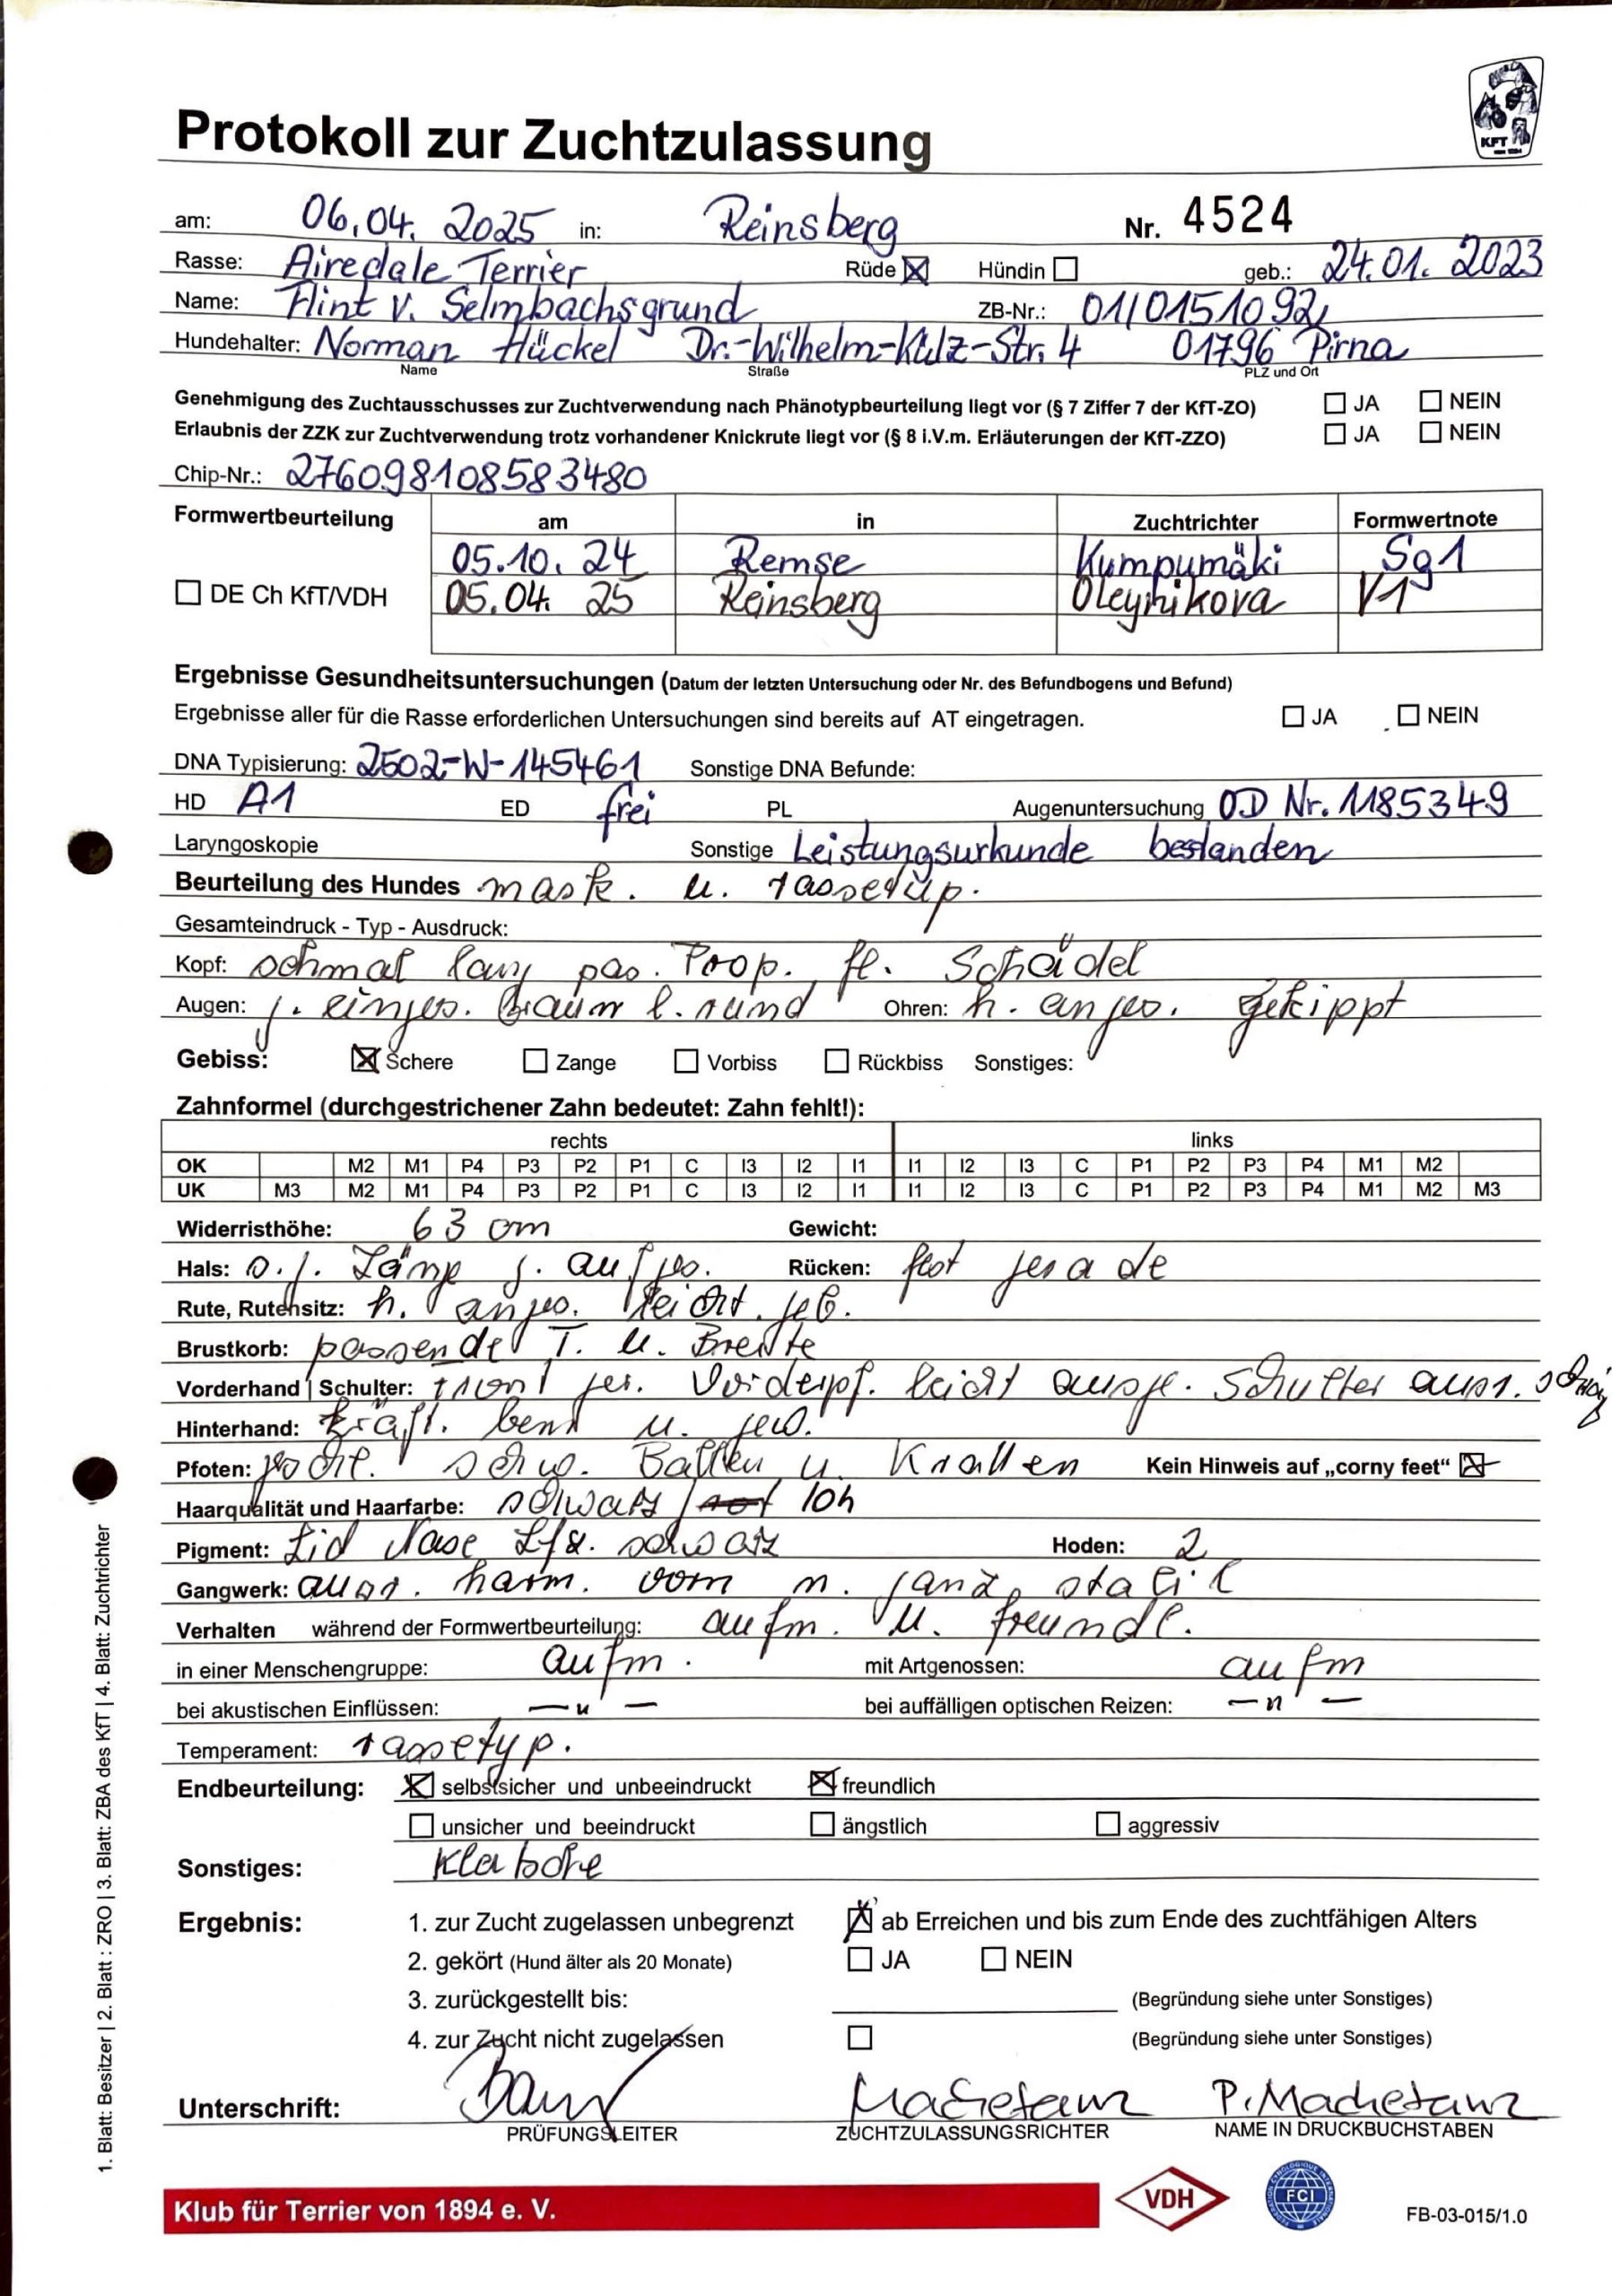 KFT
Protokoll zur Zuchtzulassung
am: 06.04. 2025 in: Reinsberg Nr. 4524
Rasse: Airedale Terrier Rüde ☒ Hündin ☐ geb.: 24.01. 2023
Name: Flint v. Selmbachsgrund ZB-Nr.: 01/0151092
Hundehalter: Norman Hückel Dr.-Wilhelm-Külz-Str. 4 01796 Pirna
Name Straße PLZ und Ort
Genehmigung des Zuchtausschusses zur Zuchtverwendung nach Phänotypbeurteilung liegt vor (§ 7 Ziffer 7 der KfT-ZO) ☐ JA ☐ NEIN
Erlaubnis der ZZK zur Zuchtverwendung trotz vorhandener Knickrute liegt vor (§ 8 i.V.m. Erläuterungen der KfT-ZZO) ☐ JA ☐ NEIN
Chip-Nr.: 276098108583480
Formwertbeurteilung am in Zuchtrichter Formwertnote
05.10. 24 Remse Kumpumäki Sg1
☐ DE Ch KfT/VDH 05.04. 25 Reinsberg Oleynikova V1
Ergebnisse Gesundheitsuntersuchungen (Datum der letzten Untersuchung oder Nr. des Befundbogens und Befund)
Ergebnisse aller für die Rasse erforderlichen Untersuchungen sind bereits auf AT eingetragen. ☐ JA ☐ NEIN
DNA Typisierung: 2502-W-145461 Sonstige DNA Befunde:
HD A1 ED frei PL Augenuntersuchung O.D Nr. 1185349
Laryngoskopie Sonstige Leistungsurkunde bestanden
Beurteilung des Hundes mask. u. rassetyp.
Gesamteindruck - Typ - Ausdruck:
Kopf: schmal lang pas. Prop. fl. Schädel
Augen: g. einges. braun l. rund Ohren: h. anges. gekippt
Gebiss: ☒ Schere ☐ Zange ☐ Vorbiss ☐ Rückbiss Sonstiges:
Zahnformel (durchgestrichener Zahn bedeutet: Zahn fehlt!):
rechts links
OK M2 M1 P4 P3 P2 P1 C I3 I2 I1 I1 I2 I3 C P1 P2 P3 P4 M1 M2
UK M3 M2 M1 P4 P3 P2 P1 C I3 I2 I1 I1 I2 I3 C P1 P2 P3 P4 M1 M2 M3
Widerristhöhe: 63 cm Gewicht:
Hals: s. g. Länge g. aufges. Rücken: fest gerade
Rute, Rutensitz: h. anges. leicht geb.
Brustkorb: passende T. u. Breite
Vorderhand | Schulter: front ger. Vorderpf. leicht ausge. Schulter ausr. schräg
Hinterhand: kräft. bem. u. gew.
Pfoten: geschl. schw. Ballen u. Krallen Kein Hinweis auf „corny feet“ ☒
Haarqualität und Haarfarbe: schwarz / loh
Pigment: Lid Nase Lfz. schwarz Hoden: 2
Gangwerk: ausr. harm. vorn n. ganz stabil
Verhalten während der Formwertbeurteilung: aufm. u. freundl.
in einer Menschengruppe: aufm. mit Artgenossen: aufm
bei akustischen Einflüssen: — " — bei auffälligen optischen Reizen: — " —
Temperament: rassetyp.
Endbeurteilung: ☒ selbstsicher und unbeeindruckt ☒ freundlich
☐ unsicher und beeindruckt ☐ ängstlich ☐ aggressiv
Sonstiges:
Ergebnis: 1. zur Zucht zugelassen unbegrenzt ☒ ab Erreichen und bis zum Ende des zuchtfähigen Alters
2. gekört (Hund älter als 20 Monate) ☐ JA ☐ NEIN
3. zurückgestellt bis: (Begründung siehe unter Sonstiges)
4. zur Zucht nicht zugelassen ☐ (Begründung siehe unter Sonstiges)
Unterschrift: Machetanz P. Machetanz
PRÜFUNGSLEITER ZUCHTZULASSUNGSRICHTER NAME IN DRUCKBUCHSTABEN
Klub für Terrier von 1894 e. V. VDH FCI FB-03-015/1.0
1. Blatt: Besitzer | 2. Blatt : ZRO | 3. Blatt: ZBA des KfT | 4. Blatt: Zuchtrichter